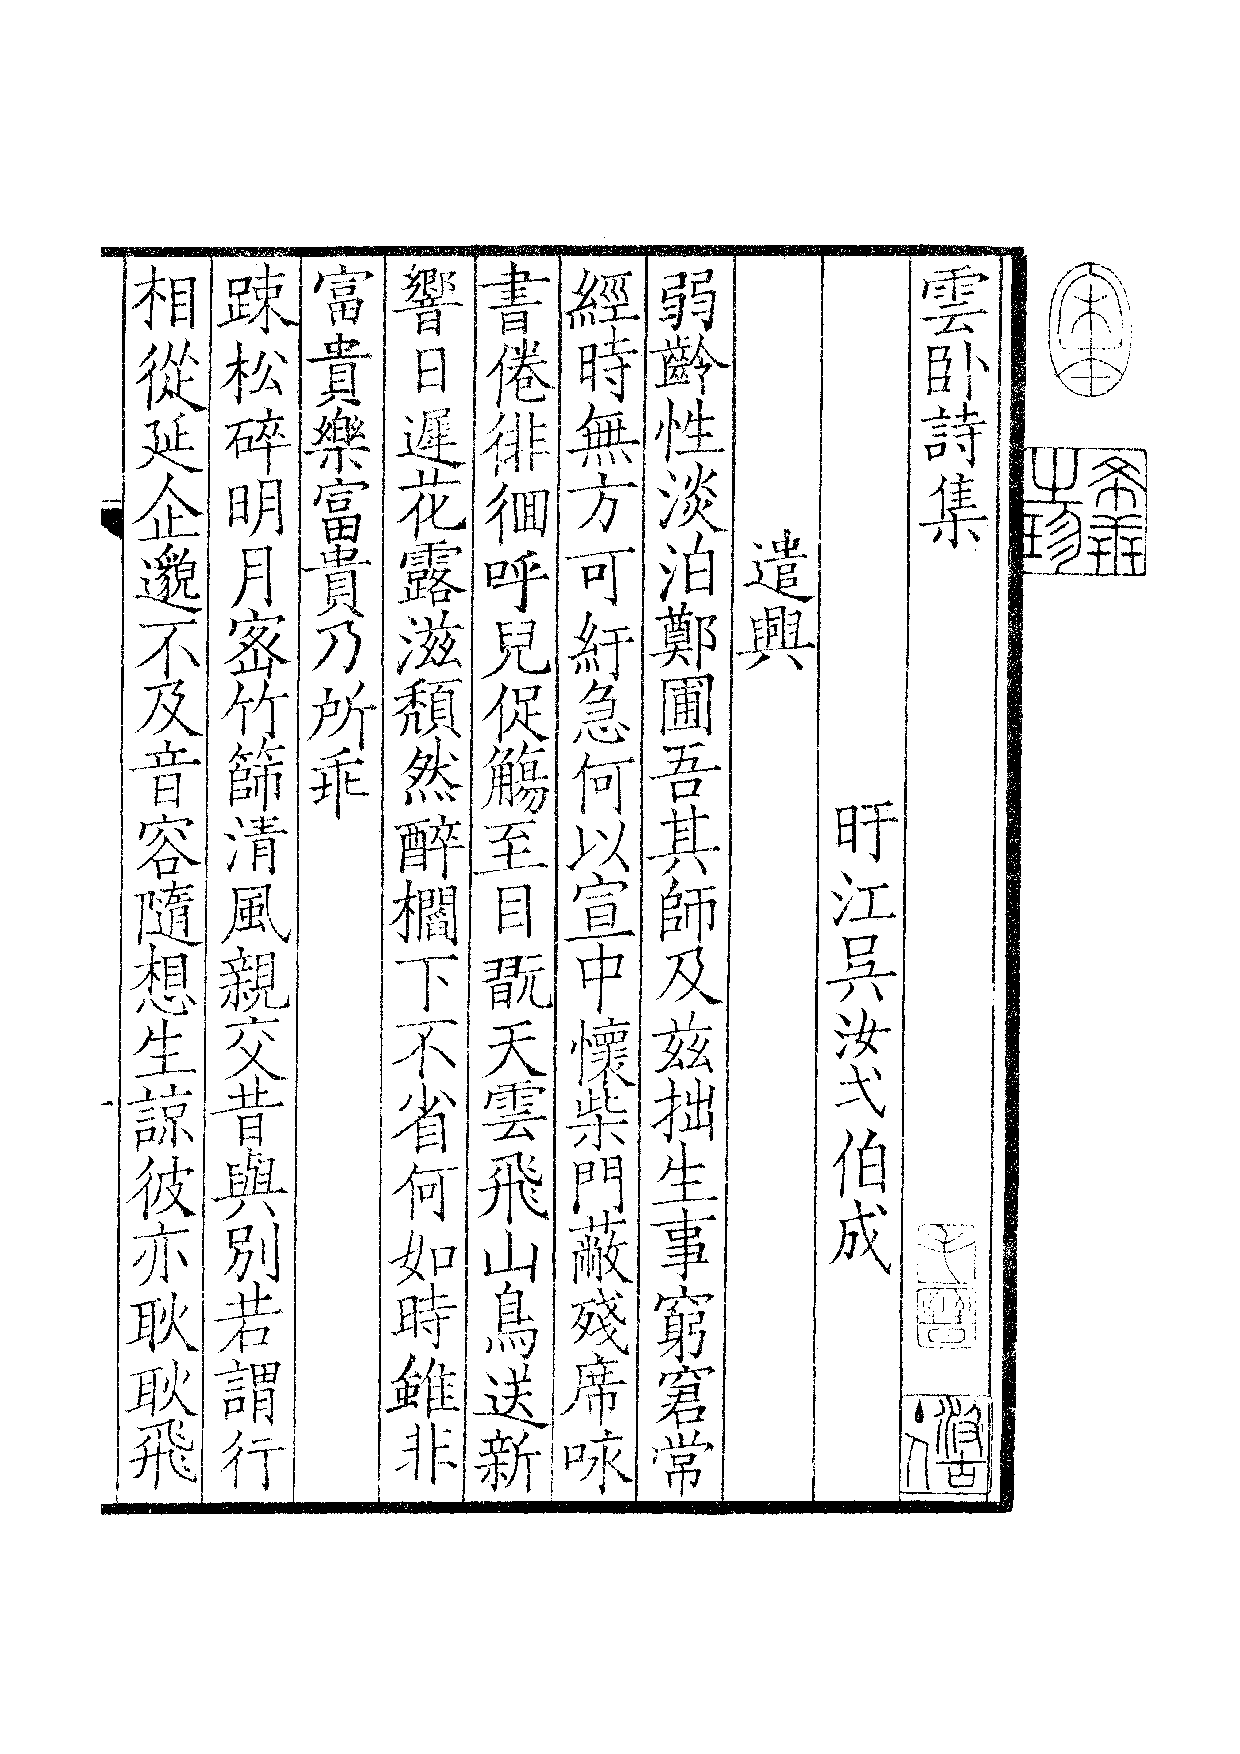 雲卧詩集
旴江吳汝弌伯成
遣興
弱齡性淡泊鄭圃吾其師及兹拙生事窮窘常
經時無方可紓急何以宣中懷柴門蔽殘席咏
書倦徘徊呼兒促觴至目翫天雲飛山鳥送新
響日遲花露滋頹然醉欄下不省何如時雖非
富貴樂富貴乃所乖
踈松碎明月宻竹篩清風親交昔與別若謂行
相從延企邈不及音容隨想生諒彼亦耿耿飛